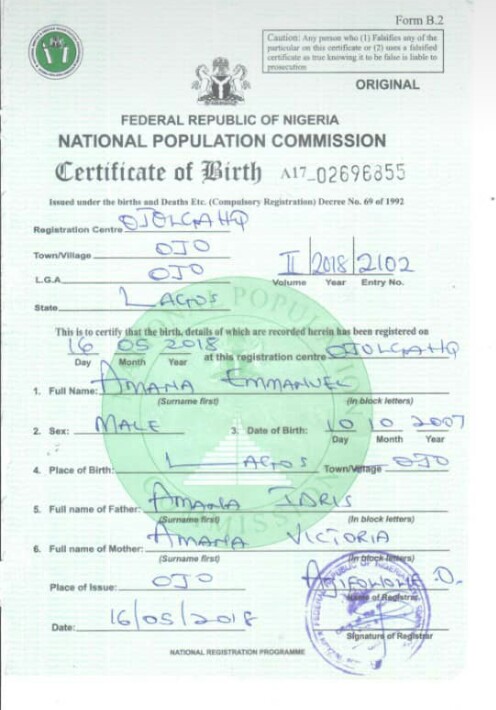 Form B.2
Caution: Any person who (1) Falsifies any of the
particular on this certificate or (2) uses a falsified
certificate as true knowing it to be false is liable to
prosecution
ORIGINAL
FEDERAL REPUBLIC OF NIGERIA
NATIONAL POPULATION COMMISSION
Certificate of Birth A17_02696855
Issued under the births and Deaths Etc. (Compulsory Registration) Decree No. 69 of 1992
Registration Centre OJOLGA HQ
Town/Village OJO
L.G.A OJO
II 2018 2102
Volume Year Entry No.
State LAGOS
This is to certify that the birth, details of which are recorded herein has been registered on
16 05 2018 at this registration centre OJOLGA HQ
Day Month Year
1. Full Name: AMANA EMMANUEL
(Surname first) (In block letters)
2. Sex: MALE 3. Date of Birth: 10 10 2007
Day Month Year
4. Place of Birth: LAGOS Town/Village OJO
5. Full name of Father: AMANA IDRIS
(Surname first) (In block letters)
6. Full name of Mother: AMANA VICTORIA
(Surname first) (In block letters)
Place of Issue: OJO
Name of Registrar
Date: 16/05/2018
Signature of Registrar
NATIONAL REGISTRATION PROGRAMME